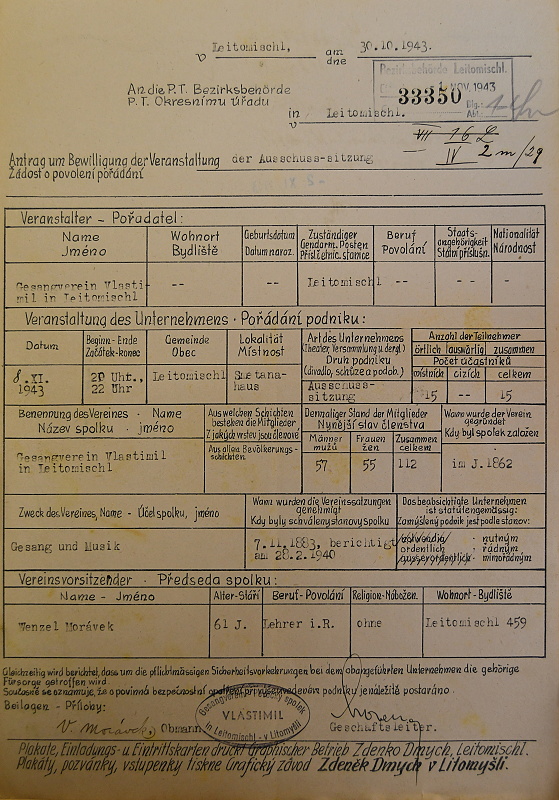 v Leitomischl, am dne 30.10.1943.
Bezirksbehörde Leitomischl.
NOV. 1943
33350
An die P.T. Bezirksbehörde
P.T. Okresnímu úřadu
in v Leitomischl.
VII 16 L
IV 2 m/29
Antrag um Bewilligung der Veranstaltung der Ausschuss-sitzung
Žádost o povolení pořádání
Veranstalter - Pořadatel:
Name Jméno
Wohnort Bydliště
Geburtsdatum Datum naroz.
Zuständiger Gendarm. Posten Přísl. četnic. stanice
Beruf Povolání
Staats-angehörigkeit Státní příslušn.
Nationalität Národnost
Gesangverein Vlasti-
mil in Leitomischl
-- -- Leitomischl -- -- -
Veranstaltung des Unternehmens - Pořádání podniku:
Datum
Beginn - Ende Začátek-konec
Gemeinde Obec
Lokalität Místnost
Art des Unternehmens (Theater, Versammlung u dergl.) Druh podniku (divadlo, schůze a podob.)
Anzahl der Teilnehmer
örtlich auswärtig zusammen
Počet účastníků
místních cizích celkem
8. XI. 1943
20 Uhr., 22 Uhr
Leitomischl
Smetana-haus
Ausschuss-sitzung
15 -- 15
Benennung des Vereines - Name
Název spolku - jméno
Aus welchen Schichten bestehen die Mitglieder
Z jakých vrstev jsou členové
Dermaliger Stand der Mitglieder
Nynější stav členstva
Männer mužů
Frauen žen
Zusammen celkem
Wann wurde der Verein gegründet
Kdy byl spolek založen
Gesangverein Vlastimil
in Leitomischl
Aus allen Bevölkerungs-schichten.
57 55 112
im J. 1862
Zweck des Vereines, Name - Účel spolku, jméno
Wann wurden die Vereinssatzungen genehmigt
Kdy byly schváleny stanovy spolku
Das beabsichtigte Unternehmen ist statutengemässig:
Zamýšlený podnik jest podle stanov:
Gesang und Musik
7.11.1883, berichtigt
am 28.2.1940
notwendig - nutným
ordentlich - řádným
ausserordentlich - mimořádným
Vereinsvorsitzender - Předseda spolku:
Name - Jméno
Alter - Stáří
Beruf - Povolání
Religion - Nábožen.
Wohnort - Bydliště
Wenzel Morávek
61 J.
Lehrer i.R.
ohne
Leitomischl 459
Gleichzeitig wird berichtet, dass um die pflichtmässigen Sicherheitsvorkehrungen bei dem obangeführten Unternehmen die gehörige
Fürsorge getroffen wird.
Současně se oznamuje, že o povinná bezpečnostní opatření při výše uvedeném podniku je náležitě postaráno.
Beilagen - Přílohy:
V. Morávek, Obmann
VLASTIMIL
in Leitomischl - v Litomyšli
Geschäftsleiter.
Plakate, Einladungs- u Eintrittskarten druckt Graphischer Betrieb Zdenko Dmych, Leitomischl.
Plakáty, pozvánky, vstupenky tiskne Grafický závod Zdeněk Dmych v Litomyšli.